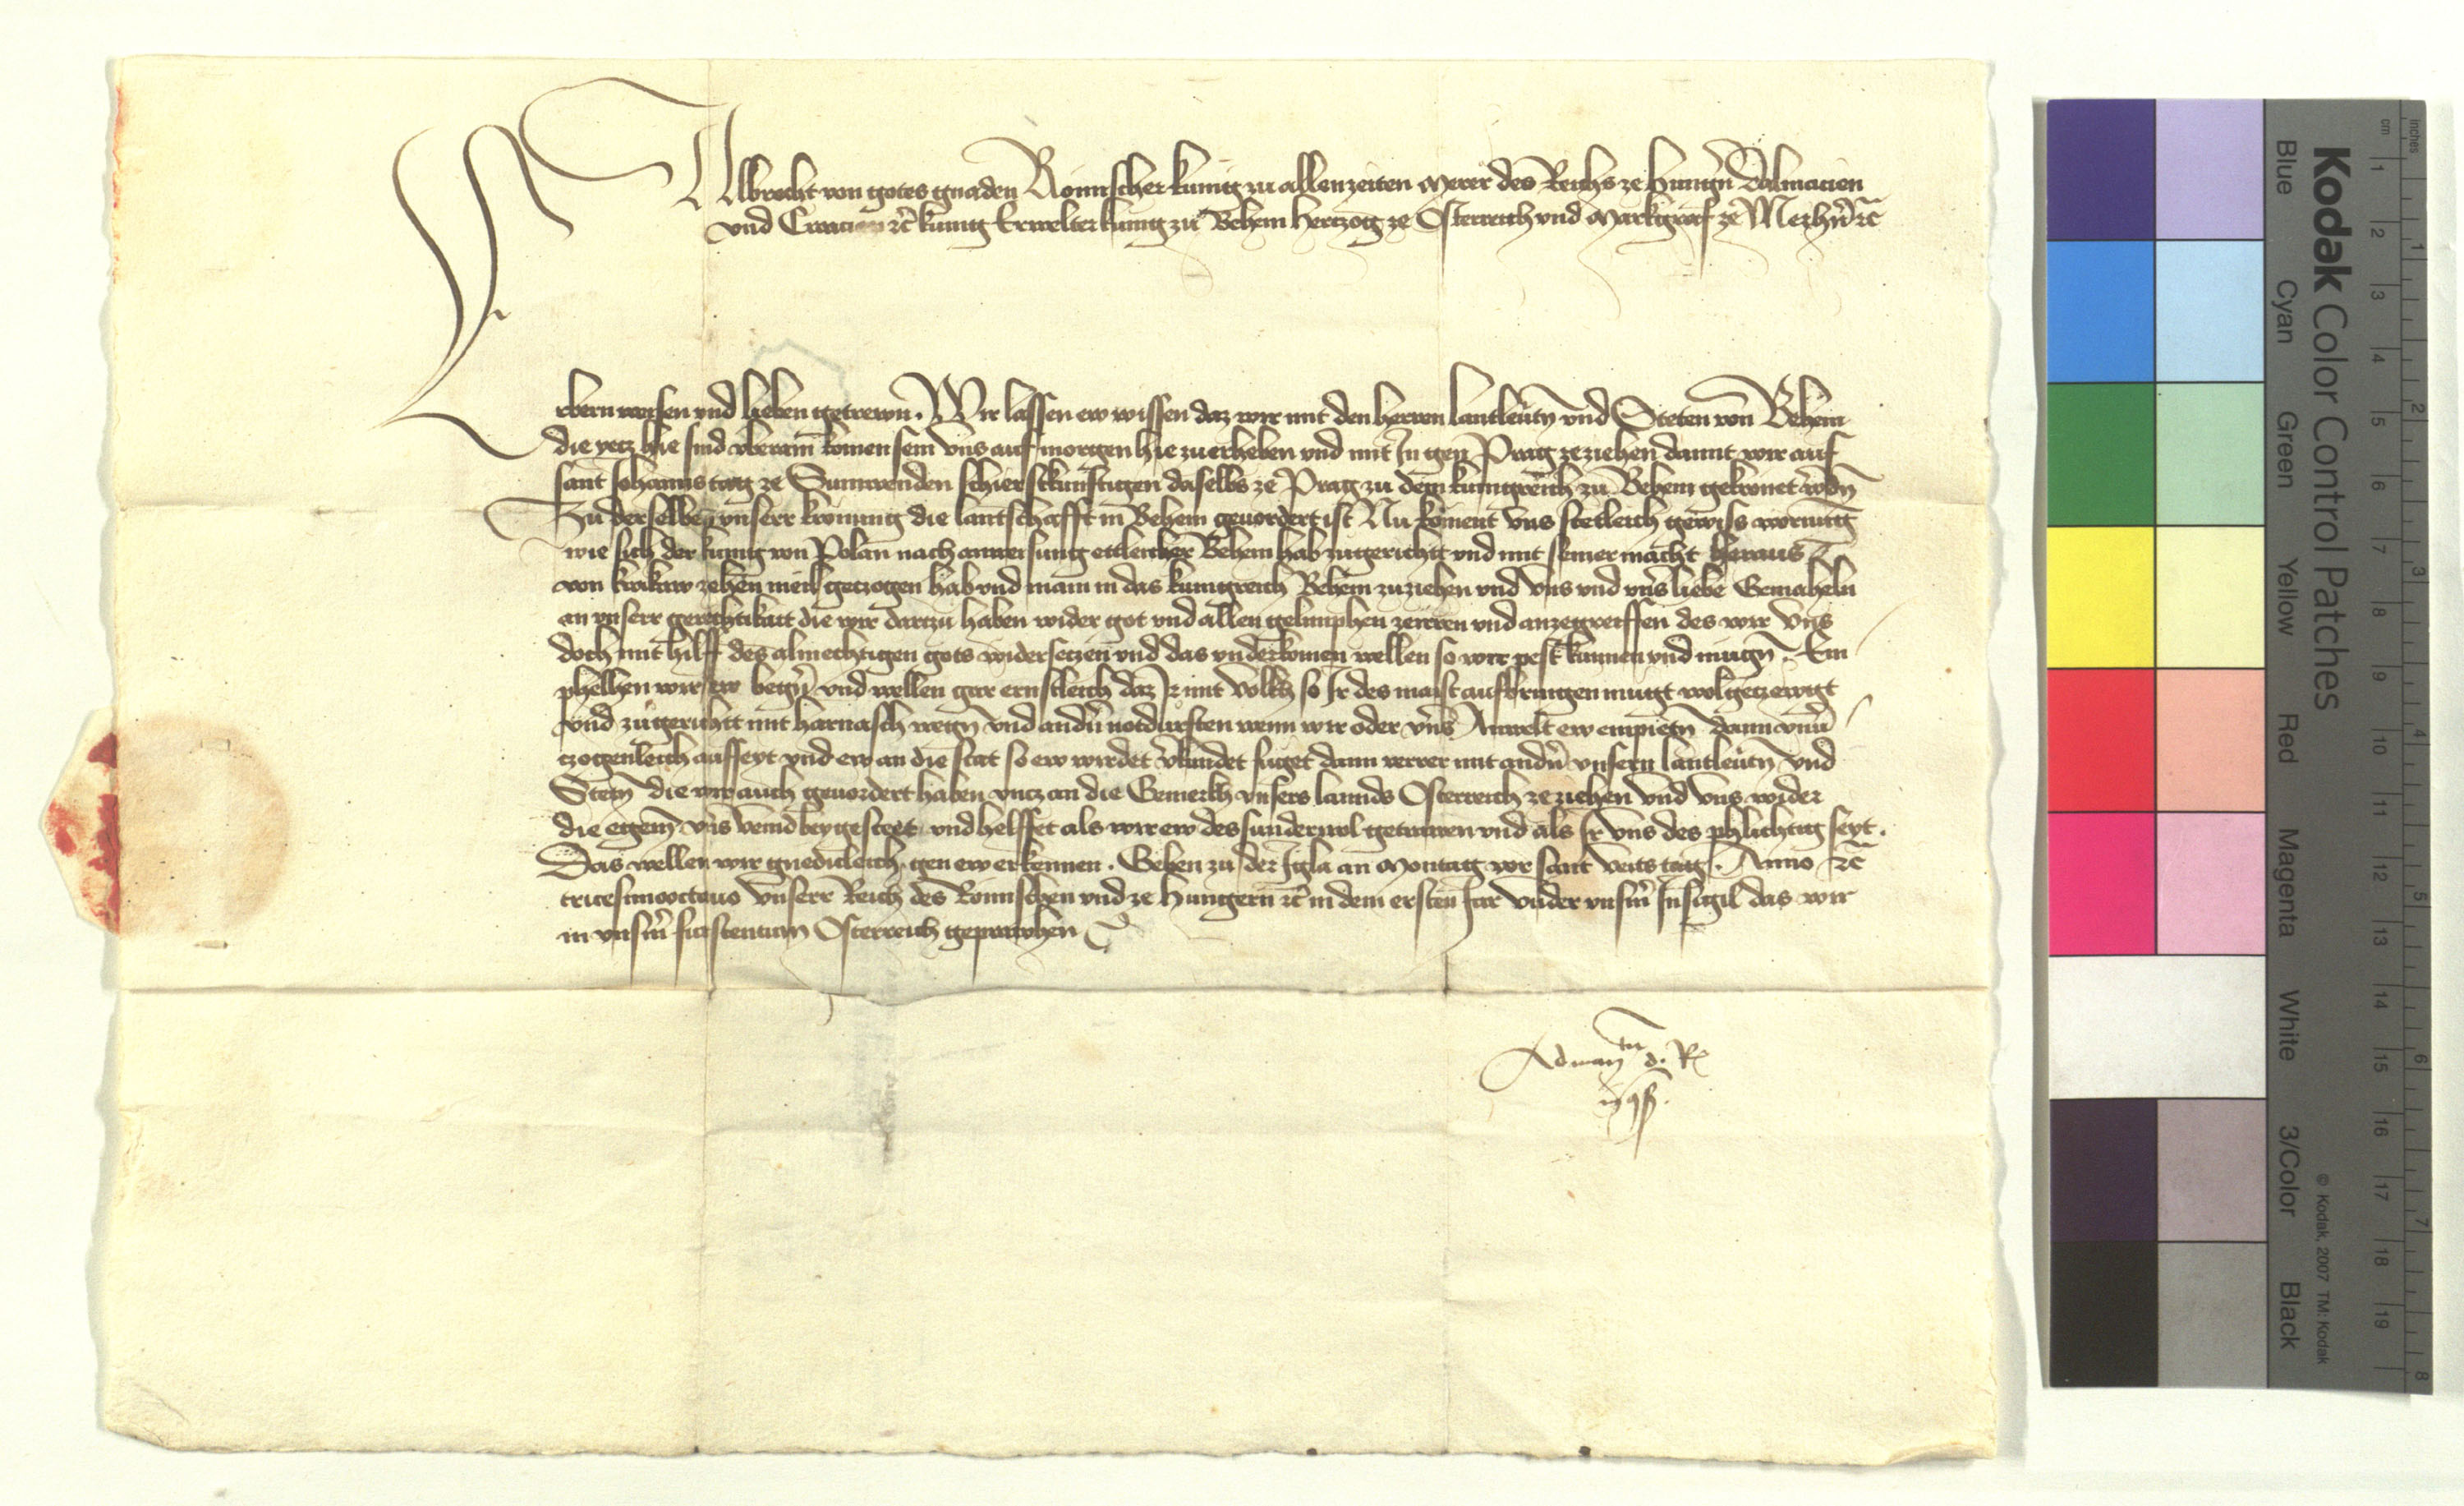 Albrecht von gotes gnaden Romischer kunig zu allenzeiten Merer des Reichs ze Hungern̄ Dalmacien
und Croacien ꝛc̄ kunig Erwelter kunig zu Behem Herczog ze Osterreich und Markgraf ze Merhern̄ ꝛc̄
Erbern weisen vnd lieben getrewn̄. Wir lassen ew wissen daz wir mit den herren lantleutn̄ vnd Steten von Behem
die yecz hie sind vberain komen sein vns auf morgen hie zuerheben vnd mit In gen Prag zeziehen damit wir auf
sant Johannstag ze Sunnwenden schierstkunftigen daselbs ze Prag zu dem kunigreich zu Behem gekronet werdn̄
Zu derselben vnserr kronung die lantschafft in Behem geuordert ist Nu koment vns stetleich gewiss warnung
wie sich der kunig von Polan nach anweisung ettlicher Behem hab zugerichtt vnd mit seiner macht heraus
von krakaw zehen meil geczogen hab vnd main in das kunigreich Behem zuziehen vnd vns vnd vns̄ liebe Gemaheln
an vnserr gerechtikait die wir darczu haben wider got vnd allen gelimphen zeirren vnd anzegreiffen des wir vns
doch mit hilff des almechtigen gots widersetzen vnd das vnderkomen wellen so wir pest kunnen vnd mugn̄. Em
phelhen wir ew begern̄ vnd wellen gar ernstleich daz Ir mit volkh so Ir des maist aufbringen mugt wolgeczewgt
vnd zugerichtt mit harnasch wegn̄ vnd andern̄ notdurften wenn wir oder vns̄ Anwelt ew empietn̄ dann vnu̇
czogenleich aufseyt vnd ew an die stat so ew wirdet v̄kundet fuget dann verrer mit andern̄ vnsern lantleutn̄ vnd
Stetn̄ die wir auch geuordert haben vncz an die Gemerkh vnsers lannds Osterreich zeziehen vnd vns wider
die egen̄ vns̄ veind beygesteet vnd helffet als wir ew des sunder wol getrawen vnd als Ir vns des phlichtig seyt.
Das wellen wir gnedicleich gen ew erkennen. Geben zu der Igla an Montag vor sant Veits tag. Anno ꝛc̄
tricesimooctauo vnserr Reich des Romischen vnd ze Hungern ꝛc̄ in dem ersten Jar vnder vnserm̄ Insigil das wir
in vnserm̄ furstentum Osterreich geprauchen
Ad man tu d. R